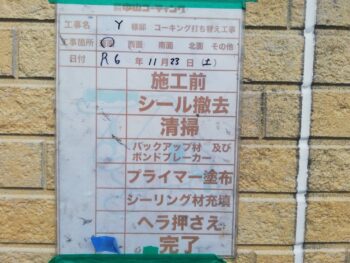 工事名 Y 様邸 コーキング打ち替え工事
工事箇所 西面 南面 北面 その他
日付 R6 年 11月 23日 (土)
施工前
シール撤去
清掃
バックアップ材 及び
ボンドブレーカー
プライマー塗布
シーリング材充填
ヘラ押さえ
完了